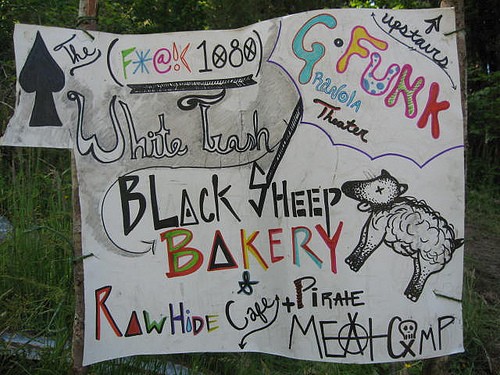 The (F*@!K 1080)
White Trash
BLACK SHEEP
BAKERY
&
RAWHIDE Cafe + PIRATE
MEAT CAMP
upstairs
G·FUNK
GRANOLA
Theater